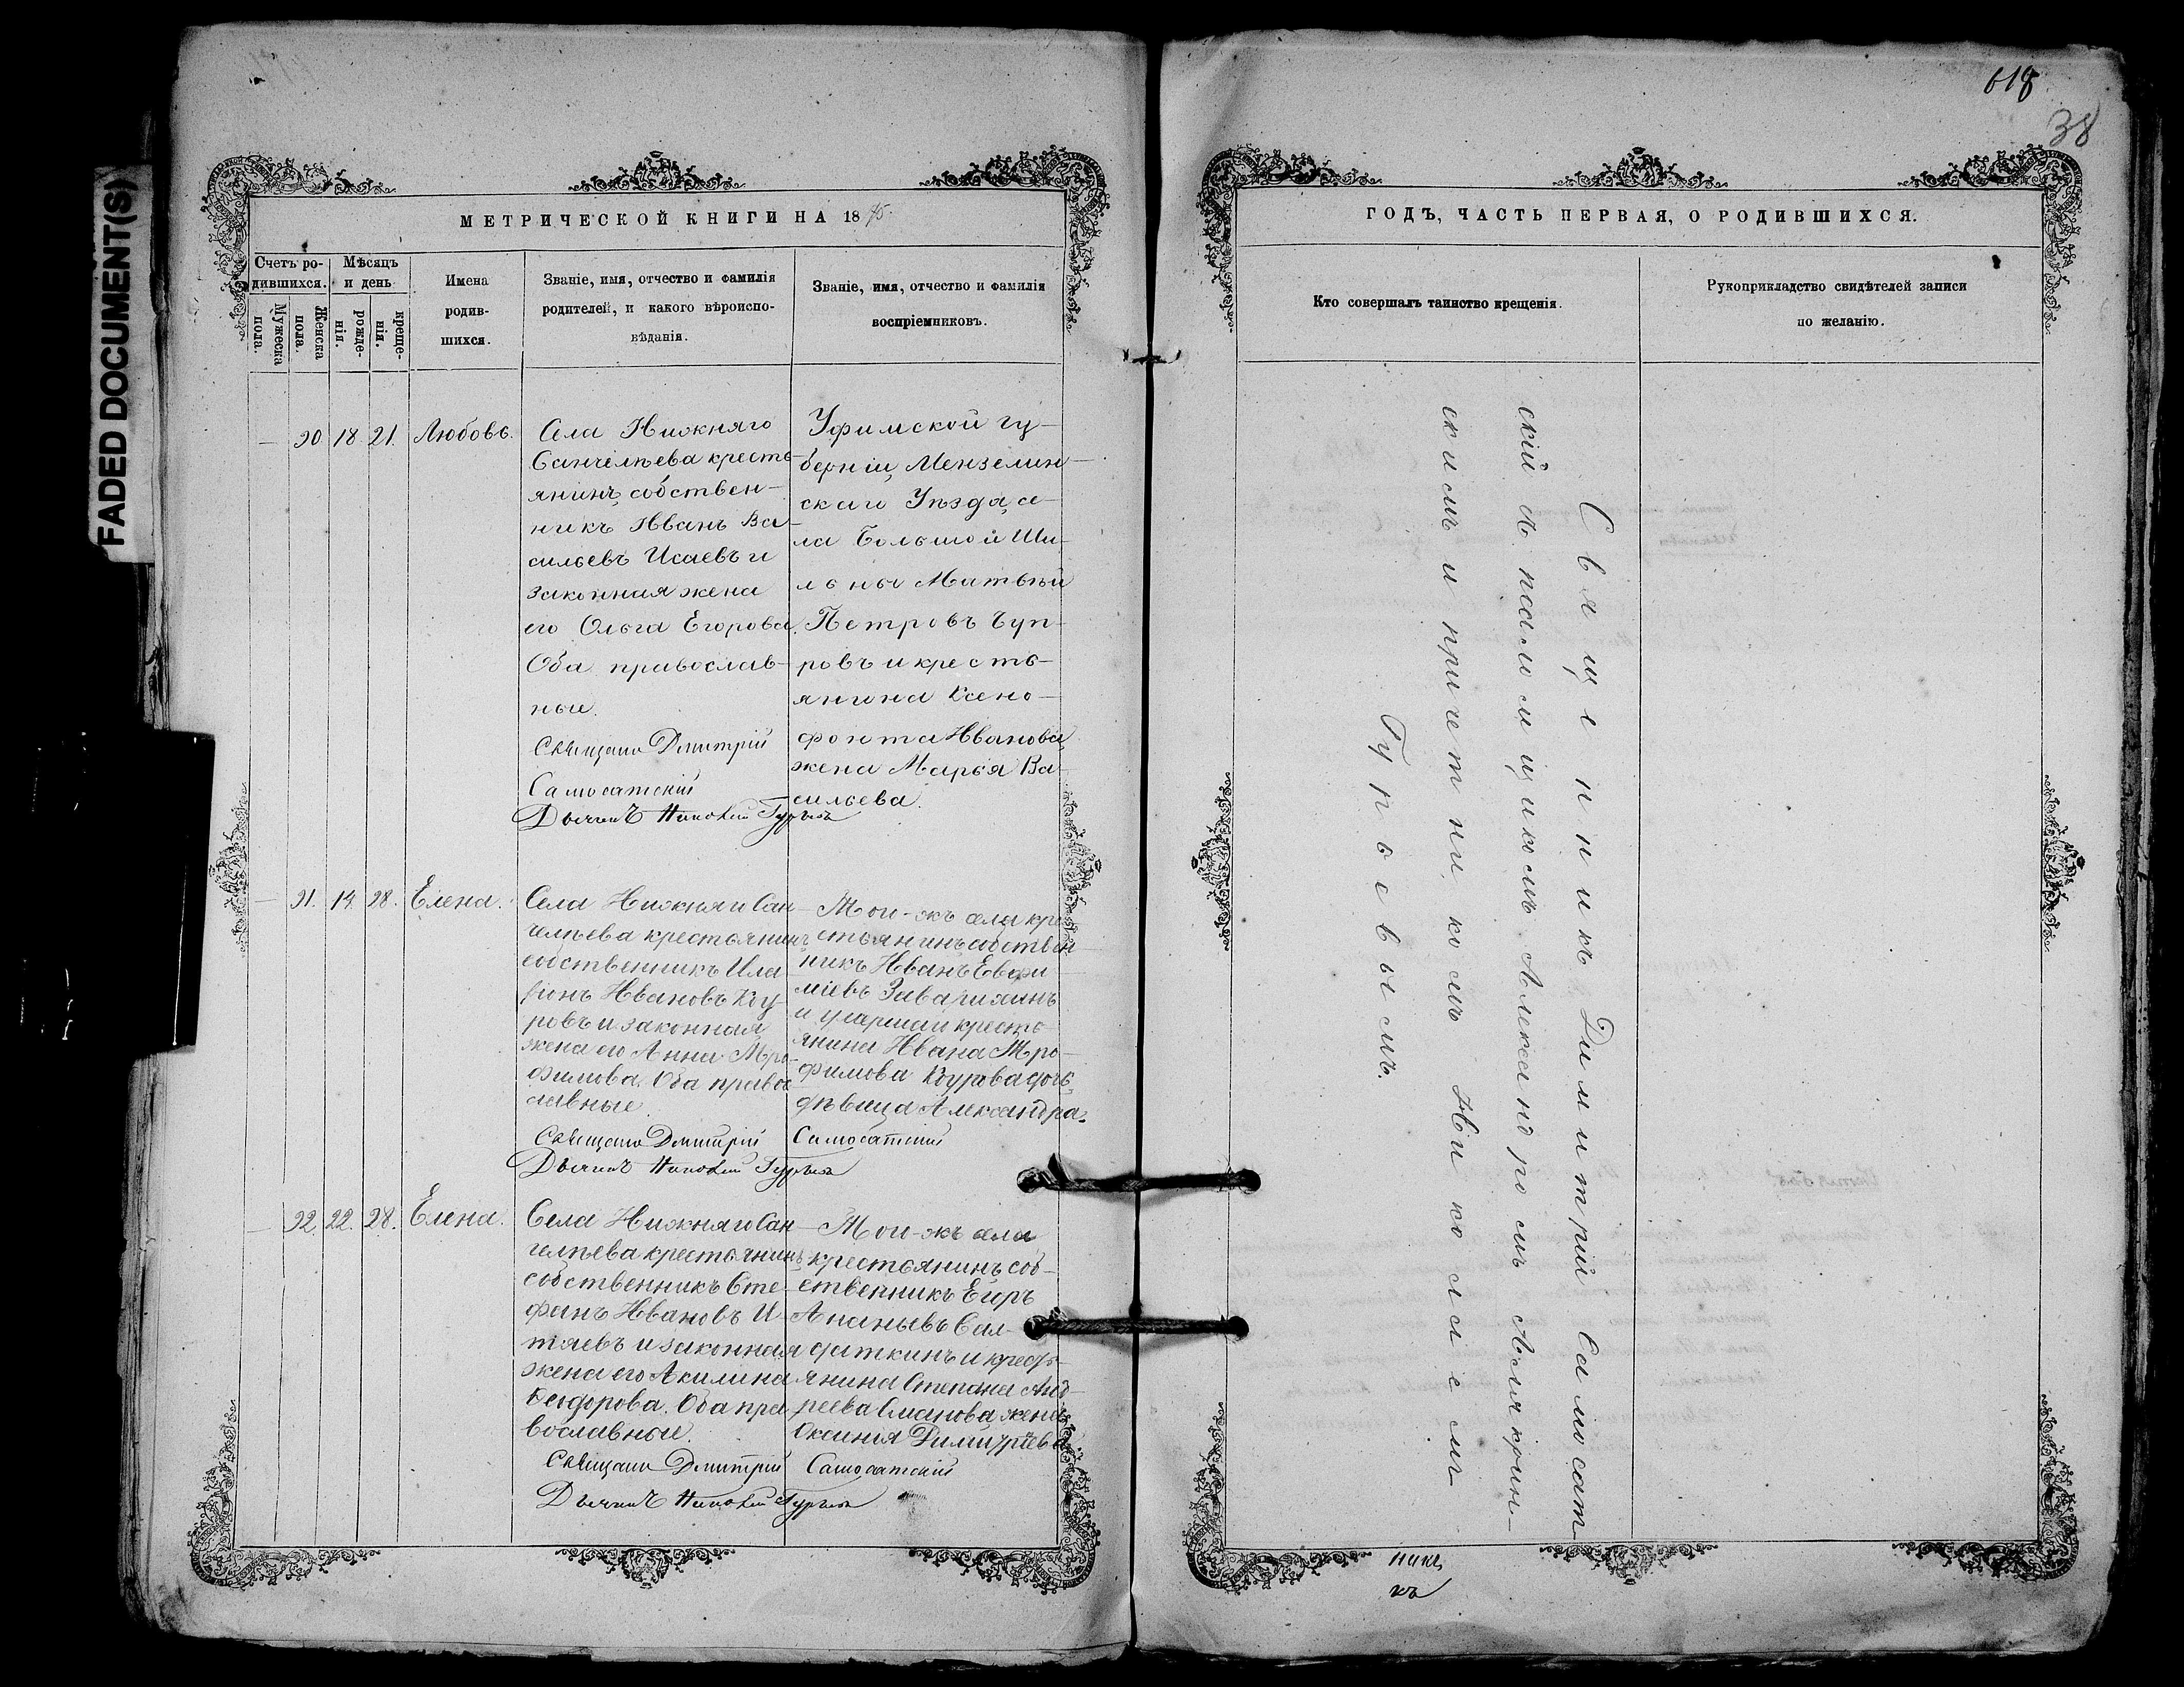 FADED DOCUMENT(S)
МЕТРИЧЕСКОЙ КНИГИ НА 1875.
Счетъ ро-
дившихся.
Мужеска
пола.
Женска
пола.
Мѣсяцъ
и день
рожде-
нія.
креще-
нія.
Имена
родив-
шихся.
Званіе, имя, отчество и фамилія
родителей, и какого вѣроиспо-
вѣданія.
Званіе, имя, отчество и фамилія
воспріемниковъ.
— 20 18. 21. Любовь.
Села Нижняго
Санчелѣева кресть-
янинъ собствен-
никъ Иванъ Ва-
сильевъ Исаевъ и
законная жена
его Ольга Егорова.
Оба православ-
ные.
Священ Дмитрій
Самосатскій
Дьячекъ Николай Гурьевъ
Уфимской гу-
берніи, Мензелин-
скаго Уѣзда, се-
ла Большой Ши-
льны Матвѣй
Петровъ
ровъ и кресть-
янина Ксено-
фонта Иванова
жена Марья Ва-
сильева.
— 21. 14. 28. Елена.
Села Нижняго Сан-
челѣева крестьянинъ
собственникъ Ила-
ріонъ Ивановъ Коу-
ровъ и законная
жена его Анна Тро-
фимова. Оба право-
славные.
Священ Дмитрій Самосатскій
Дьячекъ Николай Гурьевъ
Того-жъ села кре-
стьянинъ собствен-
никъ Иванъ Евфи-
міевъ
и умершаго кресть-
янина Ивана Тро-
фимова Коурова дочь
дѣвица Александра.
— 22. 22. 28. Елена.
Села Нижняго Сан-
челѣева крестьянинъ
собственникъ Сте-
фанъ Ивановъ И-
тяевъ и законная
жена его Акилина
Ѳеодорова. Оба пра-
вославные.
Священ Дмитрій Самосатскій
Дьячекъ Николай Гурьевъ
Того-жъ села
крестьянинъ соб-
ственникъ Егоръ
Ананьевъ Сал-
даткинъ и кресть-
янина Степана Анд-
реева жена
Оксинія Димитріева
618
38
ГОДЪ, ЧАСТЬ ПЕРВАЯ, О РОДИВШИХСЯ.
Кто совершалъ таинство крещенія.
Рукоприкладство свидѣтелей записи
по желанію.
Священникъ Димитрій Самосат-
скій съ псаломщикомъ Александромъ Алякрин-
скимъ и причетникомъ Николаемъ
Гурьевымъ.